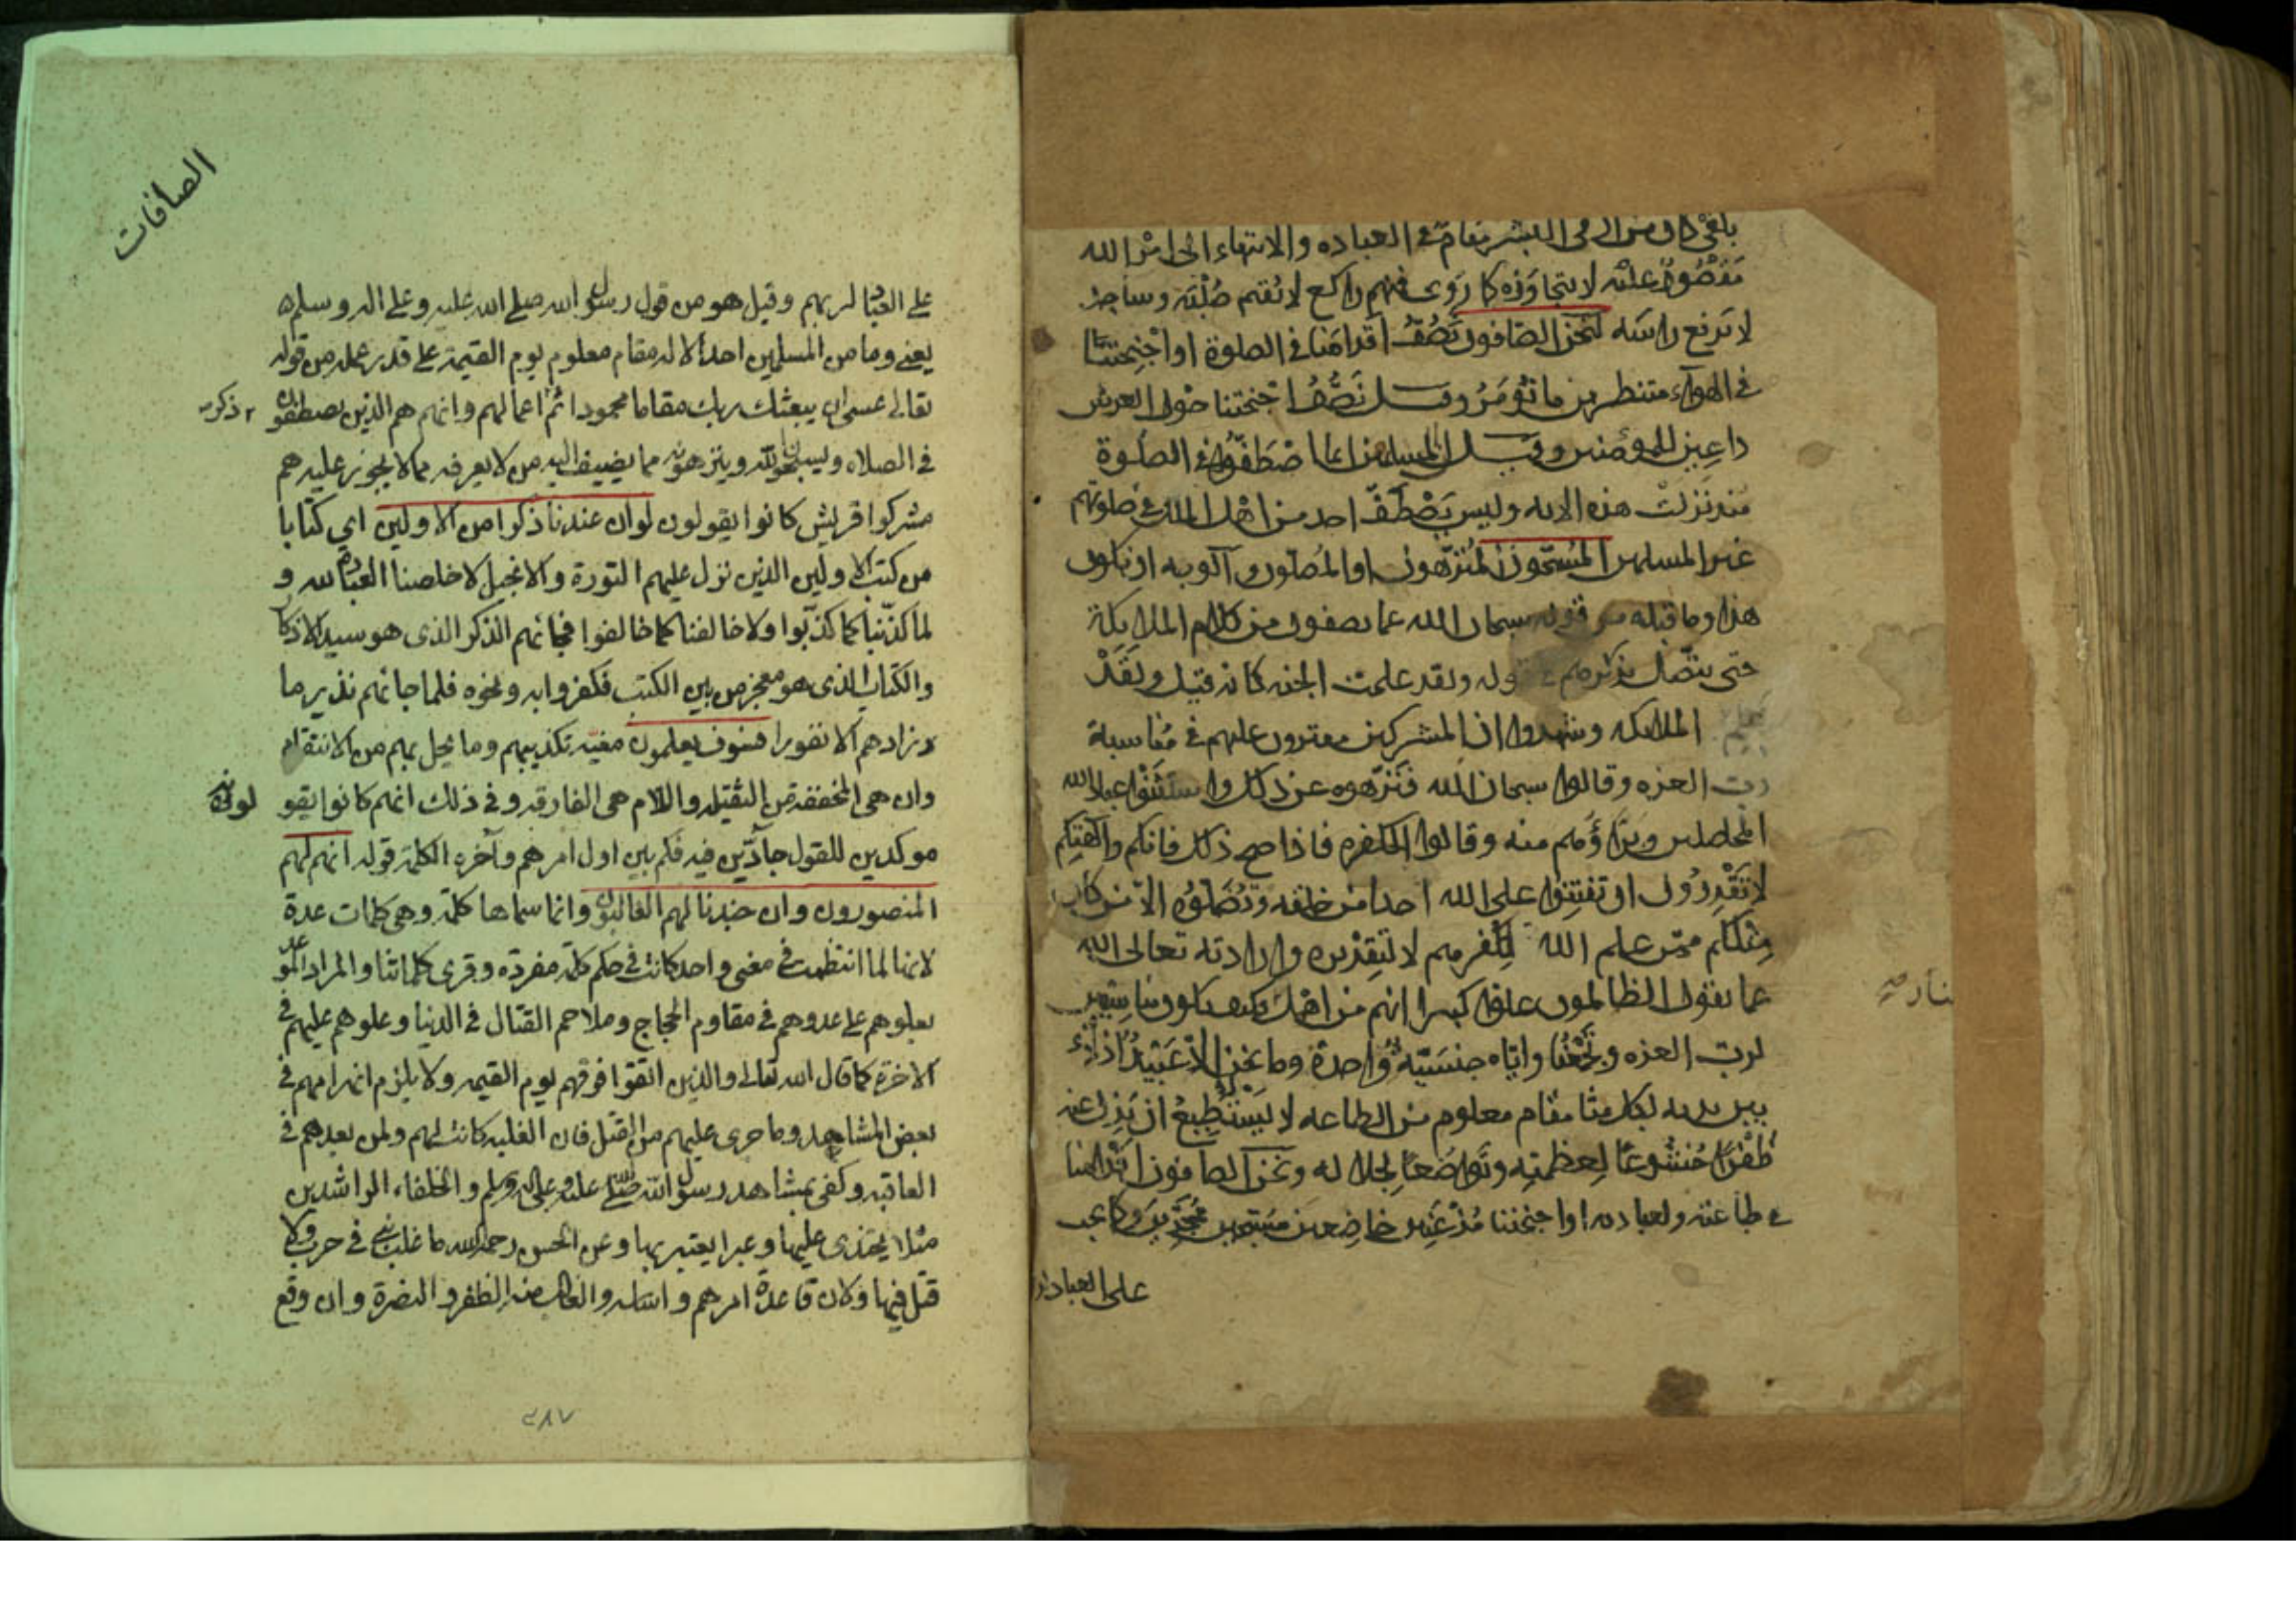 مقام في العباده والانتهاء الى امر الله
مقصور عليه لا يتجاوزه كما روى فمنهم راكع لا يقيم صلبه وساجد
لا يرفع راسه لنحن الصافون نصف اقدامنا في الصلوة او اجنحتنا
في الهواء منتظرين ما نؤمر وقيل نصف اجنحتنا حول العرش
داعين للمؤمنين وقيل ان المسلمين انما اصطفوا في الصلوة
منذ نزلت هذه الايه وليس يصطف احد من اهل الملل في صلوتهم
غير المسلمين المسبحون المنزهون او المصلون والوجه ان يكون
هذا وما قبله من قوله سبحان الله عما يصفون من كلام الملايكة
حتى يتصل بذكرهم في قوله ولقد علمت الجنه كانه قيل ولقد
علم الملايكه وشهدوا ان المشركين مفترون عليهم في مناسبة
رب العزه وقالوا سبحان الله فنزهوه عن ذلك واستثنوا عباد الله
المخلصين وبراؤهم منه وقالوا للكفره فاذا صح ذلك فانكم والهتكم
لا تقدرون ان تفتنوا على الله احدا من خلقه وتضلوه الا من كان
مثلكم ممن علم الله لكفرهم لا لتقديره وارادته تعالى الله
عما يقول الظالمون علوا كبيرا انهم من اهل وكيف نكون مناسبين
لرب العزه ونجمعنا واياه جنسية واحدة وما نحن الا عبيد اذلاء
بين يديه لكل منا مقام معلوم من الطاعه لا يستطيع ان يزل عنه
ظفرا خشوعا لعظمته وتواضعا لجلاله ونحن الصافون اقدامنا
في طاعته ولعبادته او اجنحتنا مذعنين خاضعين مسبحين ممجدين وكما يجب
على العباد
الصافات
على العباد لربهم وقيل هو من قول رسول الله صلى الله عليه وعلى اله وسلم
يعني وما من المسلمين احد الا له مقام معلوم يوم القيمة على قدر عمله من قوله
تعالى عسى ان يبعثك ربك مقاما محمودا ثم اعمالهم وانهم هم الذين يصطفون
ذكر
في الصلاة ويسبحون الله وينزهونه مما يضيف اليه من لا يعرفه مما لا يجوز عليه هم
مشركوا قريش كانوا يقولون لو ان عندنا ذكرا من الاولين اي كتابا
من كتب الاولين الذين نزل عليهم التورة والانجيل لاخلصنا العبادة لله و
لما كذبنا كما كذبوا ولا خالفنا كما خالفوا فجائهم الذكر الذى هو سيد الاذكار
والكتاب الذى هو معجز من بين الكتب فكفروا به ونحوه فلما جائهم نذير ما
زادهم الا نفورا فسوف يعلمون مغبة تكذيبهم وما يحل بهم من الانتقام
وان هى المخففة من الثقيلة واللام هى الفارقه وفي ذلك انهم كانوا يقو
لونه
موكدين للقول جآدّين فيه فكم بين اول امرهم وآخره الكلمة قوله انهم لهم
المنصورون وان جندنا لهم الغالبون وانما سماها كلمة وهى كلمات عدة
لانها لما انتظمت في معنى واحد كانت في حكم كلمة مفردة وقرى كلماتنا والمراد الموعد
بعلوهم على عدوهم في مقاوم الحجاج وملاحم القتال في الدنيا وعلوهم عليهم في
الاخرة كما قال الله تعالى والذين اتقوا فوقهم يوم القيمه ولا يلزم انهزامهم في
بعض المشاهد وما جرى عليهم من القتل فان الغلبه كانت لهم ولمن بعدهم في
العاقبه وكفى بمشاهد رسول الله صلى الله عليه وعلى اله وسلم والخلفاء الراشدين
مثلا يحتذى عليها وعبرا يعتبر بها وعن الحسن رحمه الله ما غلب نبي في حرب ولا
قتل فيها ولان قاعدة امرهم واساسه والغالب منه الظفر والنصرة وان وقع
٢٨٧